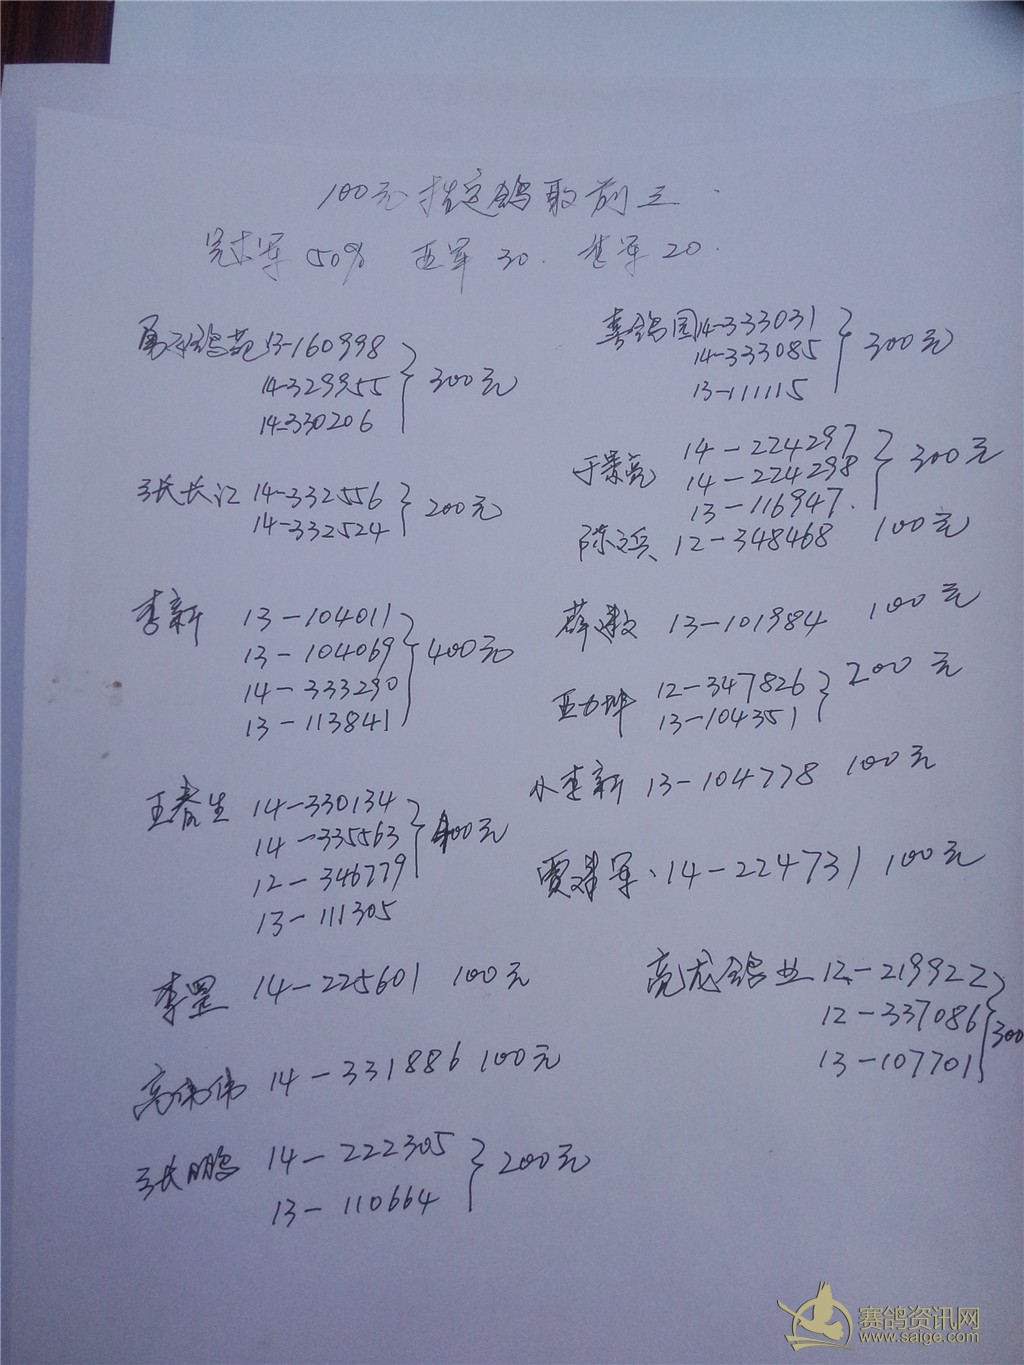 100元指定鸽取前三.
冠军 50% 亚军 30. 季军 20.
勇 鸽苑 13-160998
14-329955 300元
14-330206
张长江 14-332556 200元
14-332524
李新 13-104011
13-104069 400元
14-333290
13-113841
王春生 14-330134
14-335563 400元
12-346779
13-111305
李罡 14-225601 100元
高伟伟 14-331886 100元
张鹏 14-222305 200元
13-110664
喜鸽园 14-333031
14-333085 300元
13-111115
于景亮 14-224297
14-224298 300元
13-116947.
陈文兵 12-348468 100元
薛 13-101984 100元
王 坤 12-347826 200元
13-104351
小李新 13-104778 100元
贾 军、14-224731 100元
亮龙鸽业 12-219922
12-337086 300
13-107701
赛鸽资讯网
www.saige.com